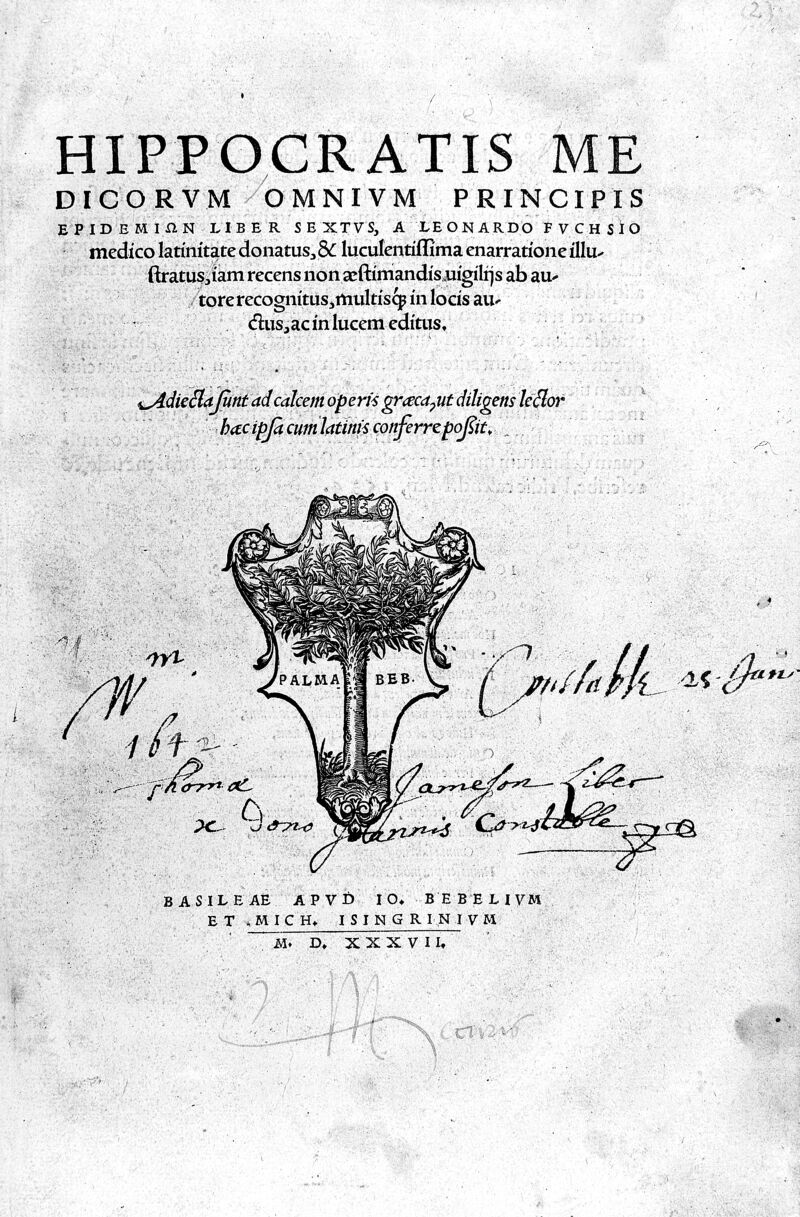 (2)
HIPPOCRATIS ME
DICORVM OMNIVM PRINCIPIS
EPIDEMIΩN LIBER SEXTVS, A LEONARDO FVCHSIO
medico latinitate donatus, & luculentiſſima enarratione illu-
ſtratus, iam recens non æſtimandis uigilijs ab au-
tore recognitus, multisq́ꝫ in locis au-
ctus, ac in lucem editus.
Adiecta ſunt ad calcem operis græca, ut diligens lector
hæc ipſa cum latinis conferre poßit.
PALMA BEB.
Wm. Constable 25. Jan
1642
Thomæ Jameson Liber
ex dono Joannis Constable
BASILEAE APVD IO. BEBELIVM
ET MICH. ISINGRINIVM
M. D. XXXVII.